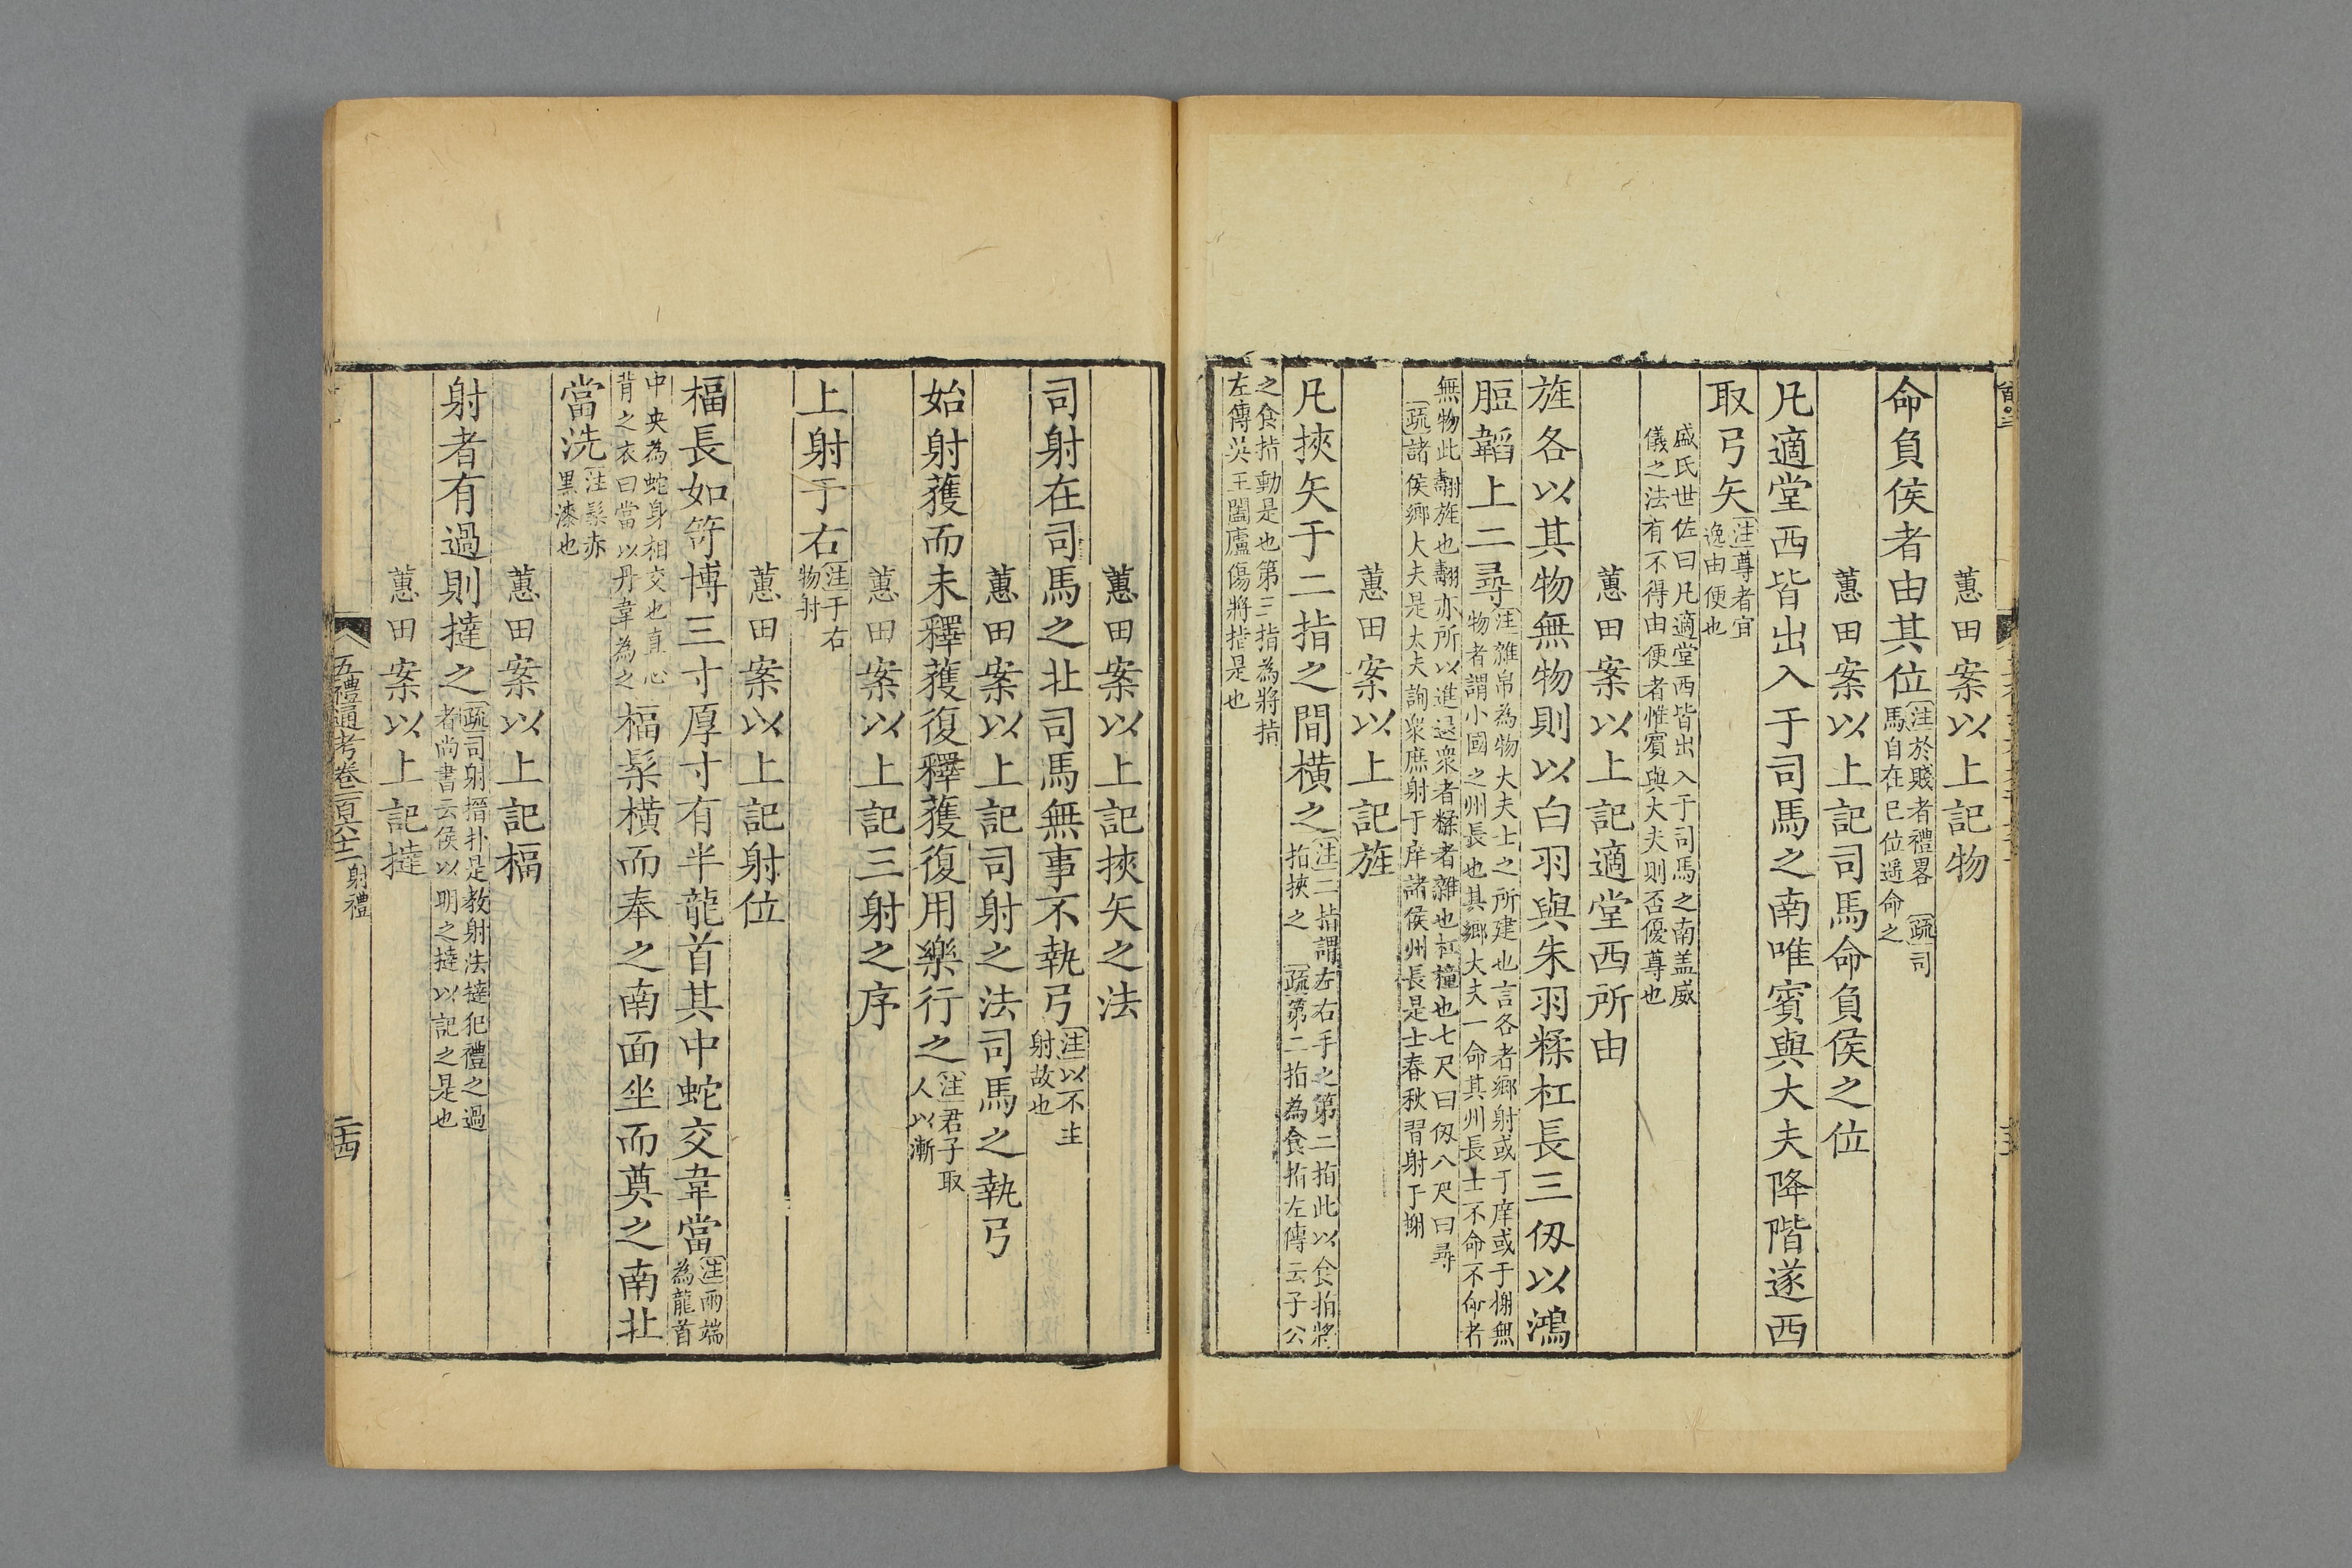 蕙田案以上記物
命負侯者由其位注於賤者禮畧 疏司馬自在己位遥命之
蕙田案以上記司馬命負侯之位
凡適堂西皆出入于司馬之南唯賓與大夫降階遂西
取弓矢注尊者宜逸由便也
盛氏世佐曰凡適堂西皆出入于司馬之南盖威儀之法有不得由便者惟賓與大夫則否優尊也
蕙田案以上記適堂西所由
旌各以其物無物則以白羽與朱羽糅杠長三仞以鴻
脰韜上二尋注雜帛為物大夫士之所建也言各者鄉射或于庠或于榭無物者謂小國之州長也其鄉大夫一命其州長士不命不命者
無物此翿旌也翿亦所以進退衆者糅者雜也杠橦也七尺曰仞八尺曰尋疏諸侯鄉大夫是大夫詢衆庶射于庠諸侯州長是士春秋習射于榭
蕙田案以上記旌
凡挾矢于二指之間橫之注二指謂左右手之第二指此以食指將指挾之 疏第二指為食指左傳云子公
之食指動是也第三指為將指左傳吳王闔廬傷將指是也
蕙田案以上記挾矢之法
司射在司馬之北司馬無事不執弓注以不主射故也
蕙田案以上記司射之法司馬之執弓
始射獲而未釋獲復釋獲復用樂行之注君子取人以漸
蕙田案以上記三射之序
上射于右注于右物射
蕙田案以上記射位
楅長如笴博三寸厚寸有半龍首其中蛇交韋當注兩端為龍首
中央為蛇身相交也直心背之衣曰當以丹韋為之楅髤橫而奉之南面坐而奠之南北
當洗注髤赤黒漆也
蕙田案以上記楅
射者有過則撻之疏司射搢扑是教射法撻犯禮之過者尚書云侯以明之撻以記之是也
蕙田案以上記撻
五禮通考卷一百六十二 射禮
二十四